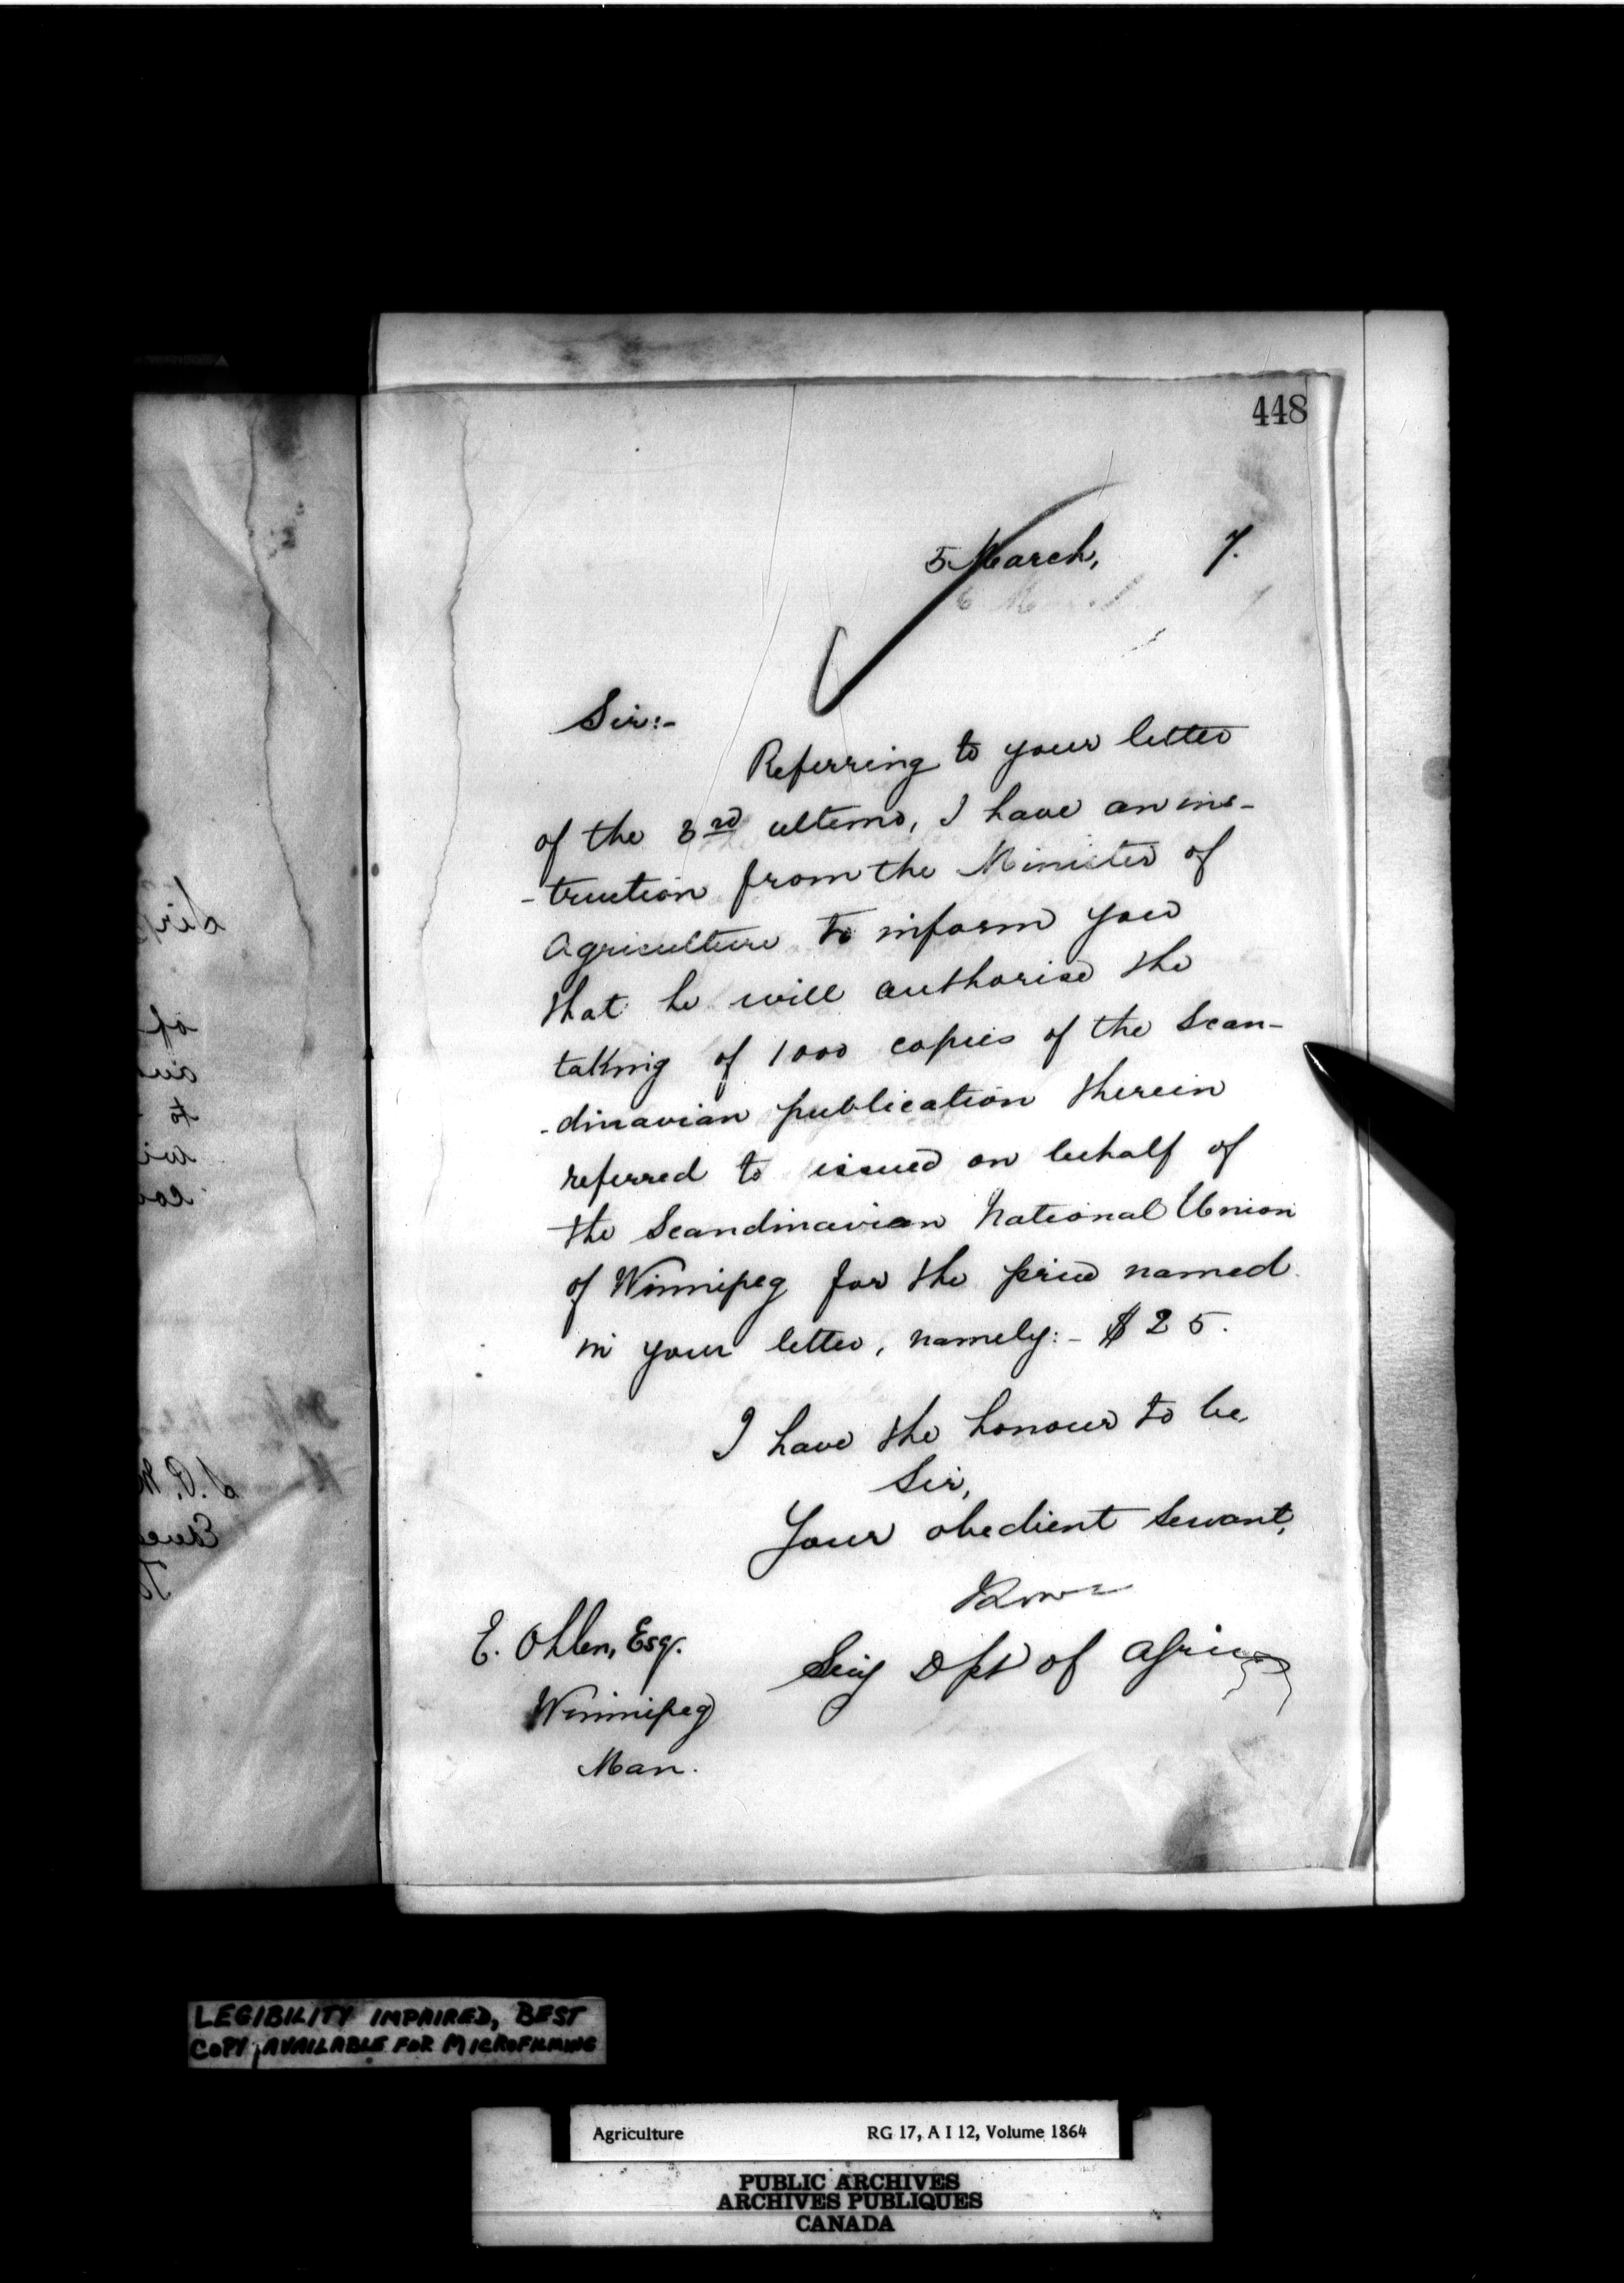 448
5 March, 7.
Sir:-
Referring to your letter
of the 3rd ultimo, I have an ins-
-truction from the Minister of
Agriculture to inform you
that he will authorise the
taking of 1000 copies of the Scan-
-dinavian publication therein
referred to issued on behalf of
the Scandinavian National Union
of Winnipeg for the price named
in your letter, namely:- $25.
I have the honour to be,
Sir,
Your obedient servant,
Secy Dpt of Agric
E. Ohlen, Esq.
Winnipeg
Man.
LEGIBILITY IMPAIRED, BEST
COPY AVAILABLE FOR MICROFILMING
Agriculture RG 17, A I 12, Volume 1864
PUBLIC ARCHIVES
ARCHIVES PUBLIQUES
CANADA